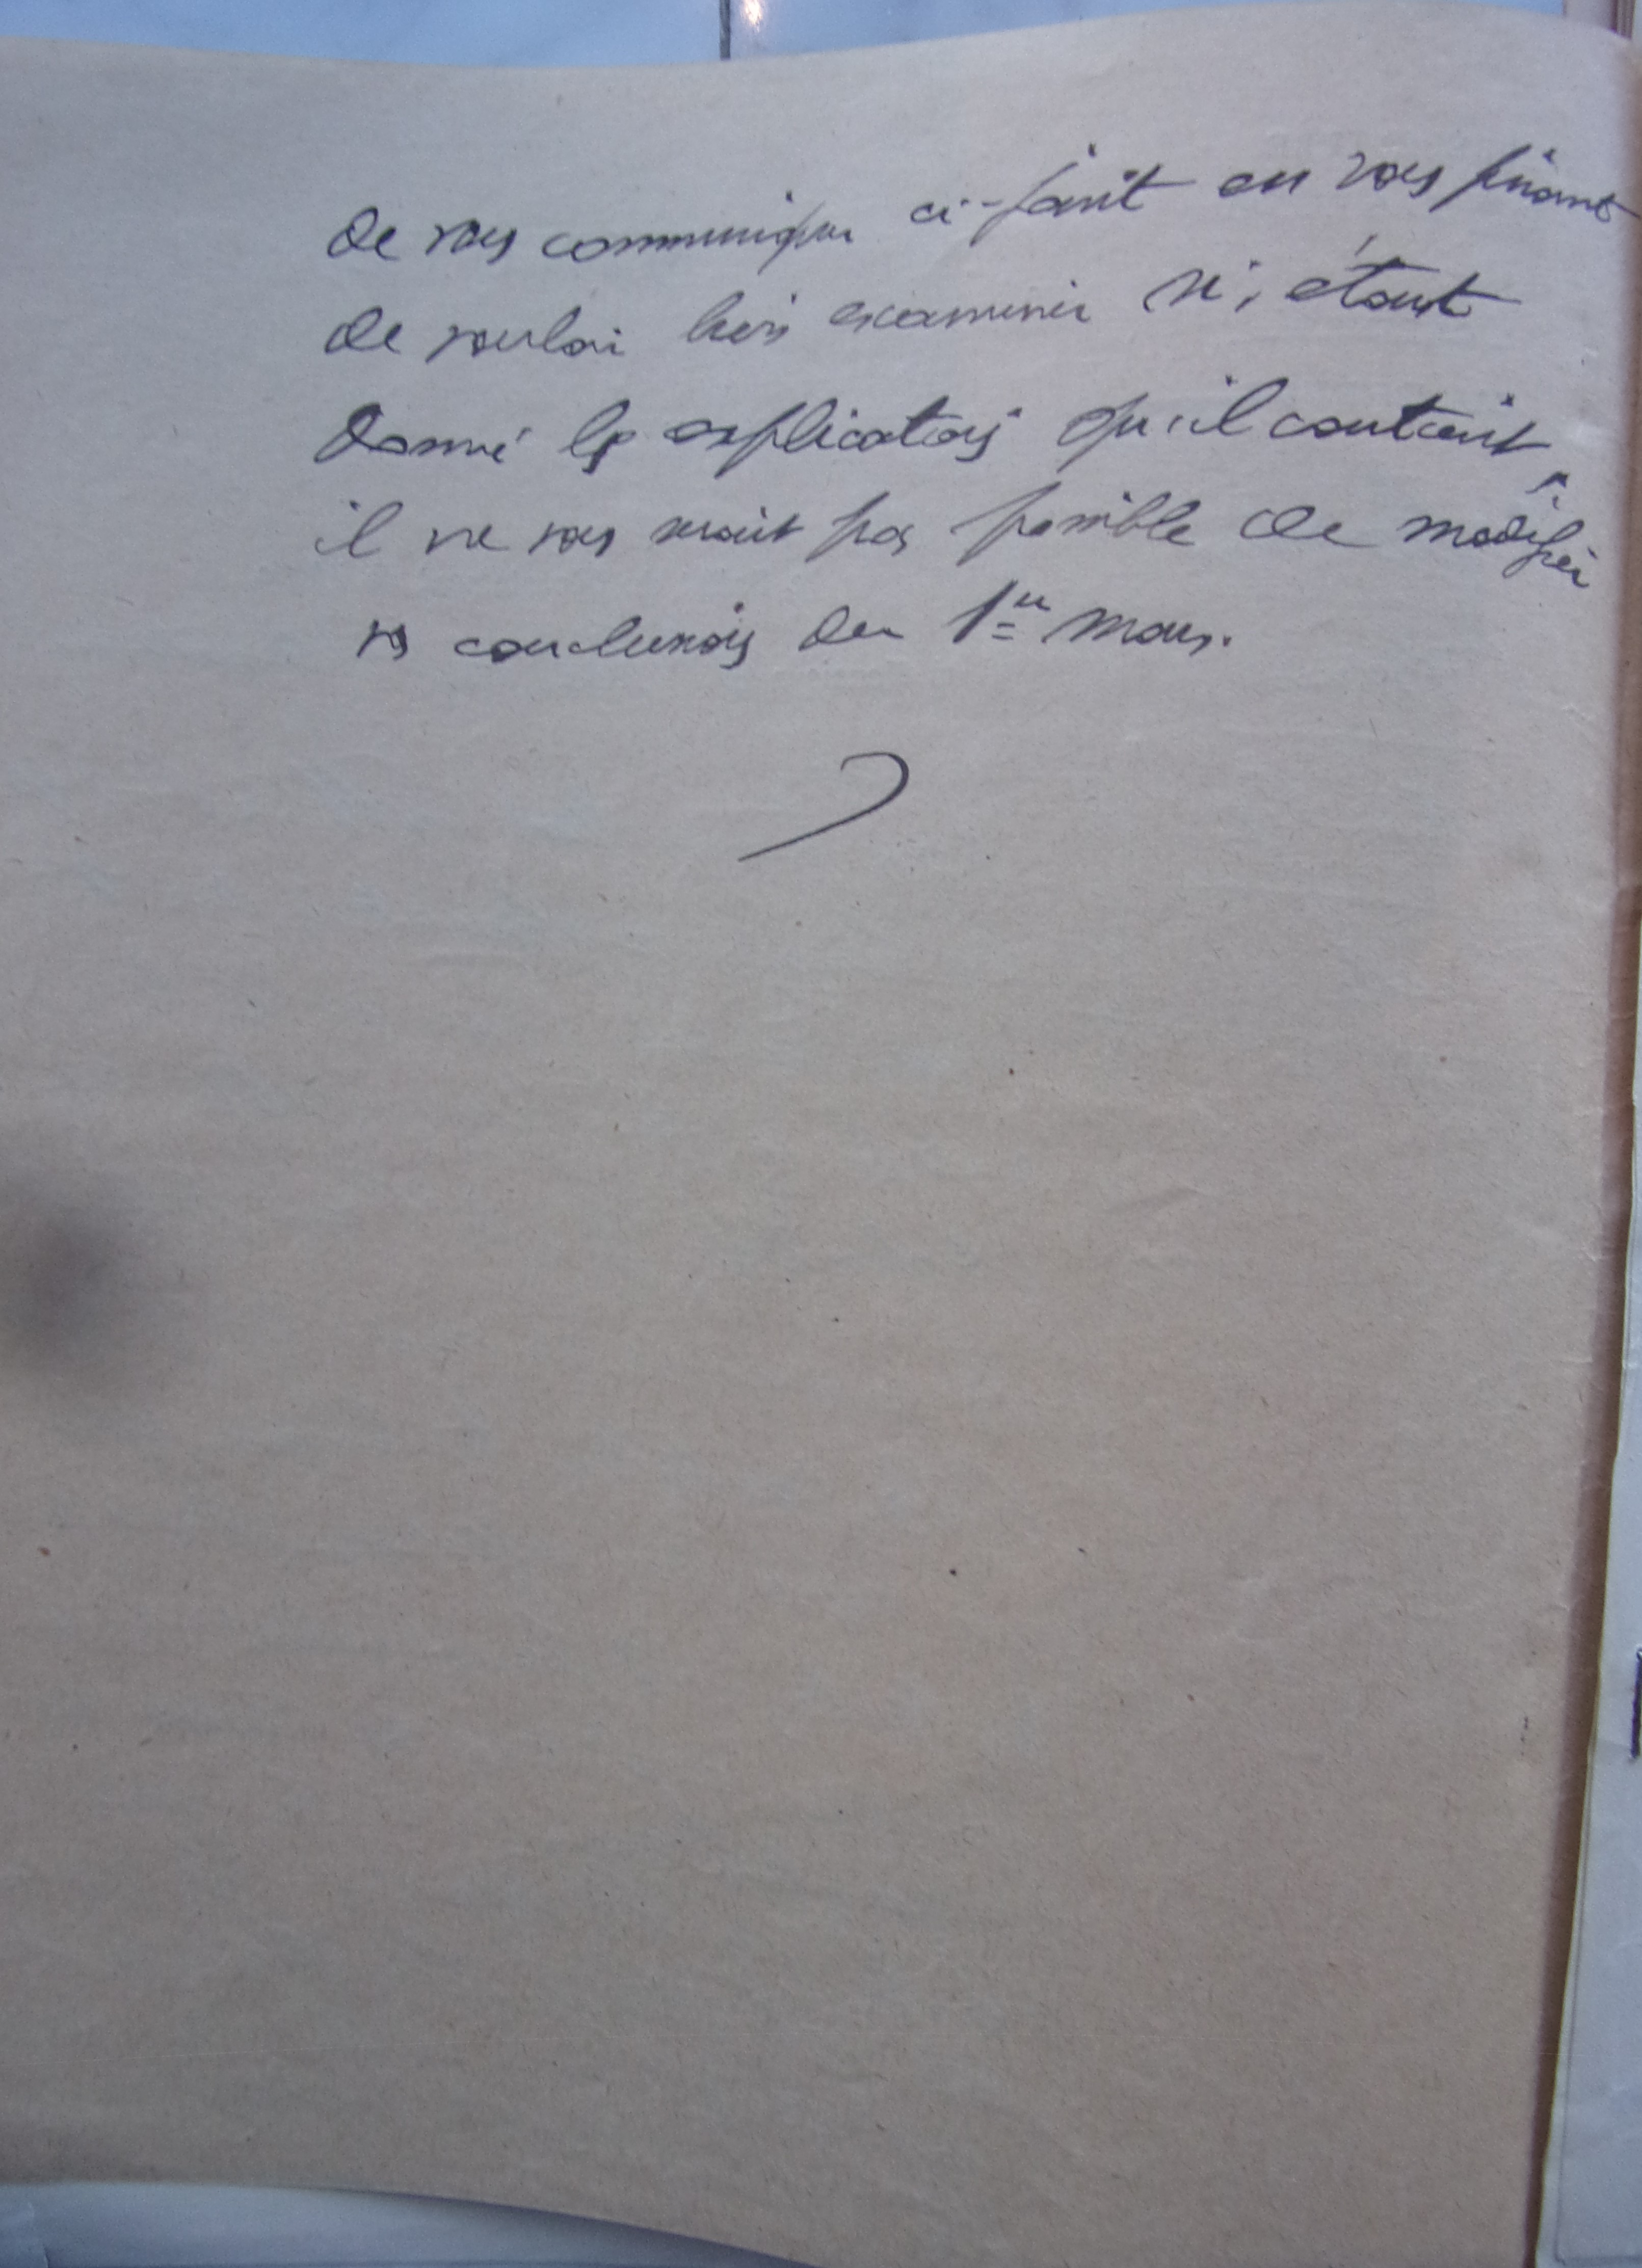 de vous communiquer ci-joint en vous priant
de vouloir bien examiner si, étant
donné les explications qu'il contient,
il ne vous serait pas possible de modifier
vos conclusions du 1er mars.